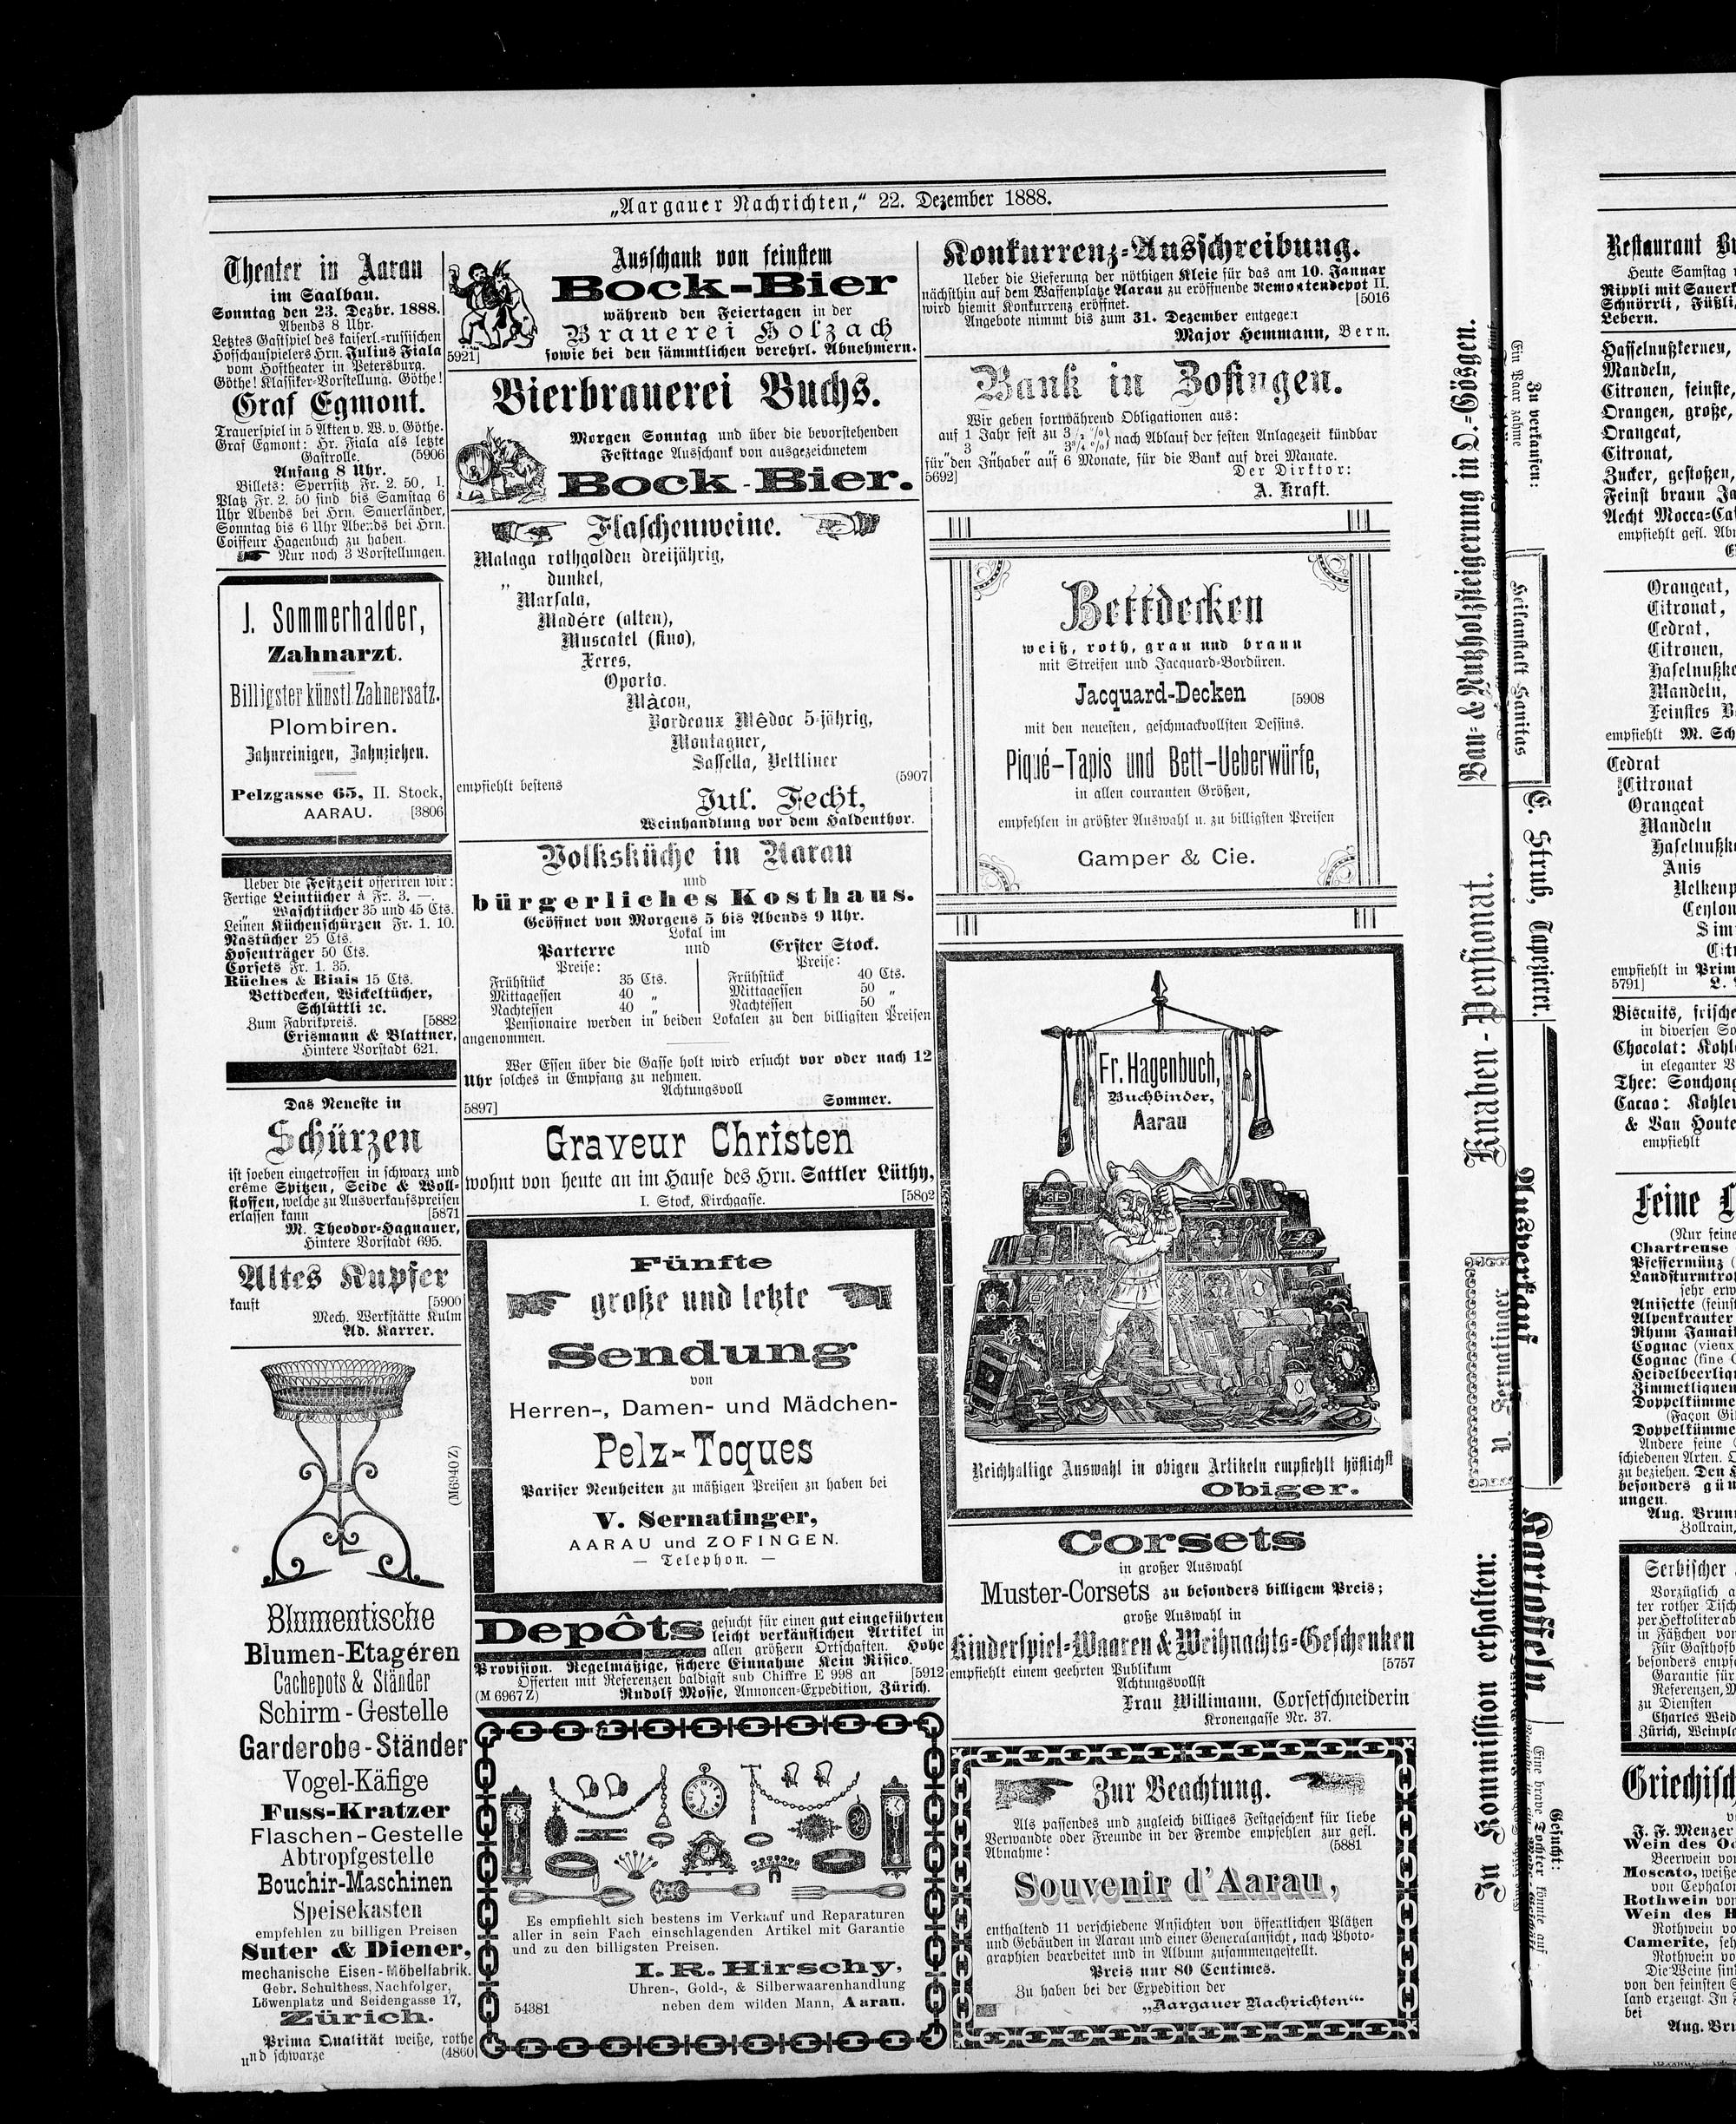 „Aargauer Nachrichten,“ 22. Dezember 1888.
Theater in Aarau
im Saalbau.
Sonntag den 23. Dezbr. 1888.
Abends 8 Uhr.
Letztes Gastspiel des kaiserl.-russischen
Hofschauspielers Hrn. Julius Fiala
vom Hoftheater in Petersburg.
Göthe! Klassiker-Vorstellung. Göthe!
Graf Egmont.
Trauerspiel in 5 Akten v. W. v. Göthe.
Graf Egmont: Hr. Fiala als letzte
Gastrolle. (5906
Anfang 8 Uhr.
Billets: Sperrsitz Fr. 2. 50, I.
Platz Fr. 2. 50 sind bis Samstag 6
Uhr Abends bei Hrn. Sauerländer,
Sonntag bis 6 Uhr Abends bei Hrn.
Coiffeur Hagenbuch zu haben.
Nur noch 3 Vorstellungen.
J. Sommerhalder,
Zahnarzt.
Billigster künstl Zahnersatz.
Plombiren.
Zahnreinigen, Zahnziehen.
Pelzgasse 65, II. Stock,
AARAU. [3806
Ueber die Festzeit offeriren wir:
Fertige Leintücher à Fr. 3. —.
„ Waschtücher 35 und 45 Cts.
Leinen Küchenschürzen Fr. 1. 10.
Nastücher 25 Cts.
Hosenträger 50 Cts.
Corsets Fr. 1. 35.
Rüches & Biais 15 Cts.
Bettdecken, Wickeltücher,
Schlüttli ꝛc.
Zum Fabrikpreis. [5882
Erismann & Blattner,
Hintere Vorstadt 621.
Das Neueste in
Schürzen
ist soeben eingetroffen in schwarz und
crême Spitzen, Seide & Woll-
stoffen, welche zu Ausverkaufspreisen
erlassen kann [5871
M. Theodor-Hagnauer,
Hintere Vorstadt 695.
Altes Kupfer
kauft [5900
Mech. Werkstätte Kulm
Ad. Karrer.
(M6940Z)
Blumentische
Blumen-Etagéren
Cachepots & Ständer
Schirm-Gestelle
Garderobe-Ständer
Vogel-Käfige
Fuss-Kratzer
Flaschen-Gestelle
Abtropfgestelle
Bouchir-Maschinen
Speisekasten
empfehlen zu billigen Preisen
Suter & Diener,
mechanische Eisen-Möbelfabrik.
Gebr. Schulthess, Nachfolger,
Löwenplatz und Seidengasse 17,
Zürich.
Prima Qualität weiße, rothe
und schwarze (4860
Ausschank von feinstem
Bock-Bier
während den Feiertagen in der
Brauerei Holzach
5921] sowie bei den sämmtlichen verehrl. Abnehmern.
Bierbrauerei Buchs.
Morgen Sonntag und über die bevorstehenden
Festtage Ausschank von ausgezeichnetem
Bock-Bier.
Flaschenweine.
Malaga rothgolden dreijährig,
„ dunkel,
Marsala,
Madére (alten),
Muscatel (fino),
Xeres,
Oporto.
Màcon,
Bordeaux Mêdoc 5-jährig,
Montagner,
Sassella, Veltliner
(5907
empfiehlt bestens
Jul. Fecht,
Weinhandlung vor dem Haldenthor.
Volksküche in Aarau
und
bürgerliches Kosthaus.
Geöffnet von Morgens 5 bis Abends 9 Uhr.
Lokal im
Parterre und Erster Stock.
Preise: Preise:
Frühstück 35 Cts. Frühstück 40 Cts.
Mittagessen 40 „ Mittagessen 50 „
Nachtessen 40 „ Nachtessen 50 „
Pensionaire werden in beiden Lokalen zu den billigsten Preisen
angenommen.
Wer Essen über die Gasse holt wird ersucht vor oder nach 12
Uhr solches in Empfang zu nehmen.
Achtungsvoll
5897] Sommer.
Graveur Christen
wohnt von heute an im Hause des Hrn. Sattler Lüthy,
I. Stock, Kirchgasse. [5802
Fünfte
große und letzte
Sendung
von
Herren-, Damen- und Mädchen-
Pelz-Toques
Pariser Neuheiten zu mäßigen Preisen zu haben bei
V. Sernatinger,
AARAU und ZOFINGEN.
— Telephon. —
Depôts gesucht für einen gut eingeführten
leicht verkäuflichen Artikel in
allen größern Ortschaften. Hohe
Provision. Regelmäßige, sichere Einnahme Kein Risico.
Offerten mit Referenzen baldigst sub Chiffre E 998 an [5912
(M 6967Z) Rudolf Mosse, Annoncen-Expedition, Zürich.
Es empfiehlt sich bestens im Verkauf und Reparaturen
aller in sein Fach einschlagenden Artikel mit Garantie
und zu den billigsten Preisen.
I. R. Hirschy,
Uhren-, Gold-, & Silberwaarenhandlung
54381 neben dem wilden Mann, Aarau.
Konkurrenz-Ausschreibung.
Ueber die Lieferung der nöthigen Kleie für das am 10. Januar
nächsthin auf dem Waffenplatze Aarau zu eröffnende Remontendepot II.
wird hiemit Konkurrenz eröffnet. [5016
Angebote nimmt bis zum 31. Dezember entgegen
Major Hemmann, Bern.
Bank in Zofingen.
Wir geben fortwährend Obligationen aus:
auf 1 Jahr fest zu 3½ %
„ 3 „ „ „ 3¾ %} nach Ablauf der festen Anlagezeit kündbar
für den Inhaber auf 6 Monate, für die Bank auf drei Monate.
5692] Der Dirktor:
A. Kraft.
Bettdecken
weiß, roth, grau und braun
mit Streifen und Jacquard-Bordüren.
Jacquard-Decken [5908
mit den neuesten, geschmackvollsten Dessins.
Piqué-Tapis und Bett-Ueberwürfe,
in allen couranten Größen,
empfehlen in größter Auswahl u. zu billigsten Preisen
Gamper & Cie.
Fr. Hagenbuch,
Buchbinder,
Aarau
Reichhaltige Auswahl in obigen Artikeln empfiehlt höflichst
Obiger.
Corsets
in großer Auswahl
Muster-Corsets zu besonders billigem Preis;
große Auswahl in
Kinderspiel-Waaren & Weihnachts-Geschenken
empfiehlt einem geehrten Publikum [5757
Achtungsvollst
Frau Willimann, Corsetschneiderin
Kronengasse Nr. 37.
Zur Beachtung.
Als passendes und zugleich billiges Festgeschenk für liebe
Verwandte oder Freunde in der Fremde empfehlen zur gefl.
Abnahme: (5881
Souvenir d'Aarau,
enthaltend 11 verschiedene Ansichten von öffentlichen Plätzen
und Gebäuden in Aarau und einer Generalansicht, nach Photo-
graphien bearbeitet und in Album zusammengestellt.
Preis nur 80 Centimes.
Zu haben bei der Expedition der
„Aargauer Nachrichten“.
Bau- & Nutzholzsteigerung in O.-Gösgen.
Knaben-Pensionat.
V. Sernatinger
In Kommission erhalten:
Ein Paar zahme
Zu verkaufen:
Heilanstalt Sanitas
E. Strub, Tapezierer.
Ausverkauf
Kartoffeln
Gesucht:
Eine brave Tochter könnte auf
Restaurant
Heute Samstag
Rippli mit
Schnörrli,
Lebern.
Hasselnußkernen,
Mandeln,
Citronen, feinste,
Orangen, große,
Orangeat,
Citronat,
Zucker, gestoßen,
Feinst braun
Aecht
empfiehlt gefl.
Orangeat,
Citronat,
Cedrat,
Citronen,
Mandeln,
Feinstes
empfiehlt M.
Cedrat
Citronat
Orangeat
Mandeln
Anis
empfiehlt in
5791]
Biscuits,
in diversen
Chocolat:
in eleganter
Thee:
Cacao:
& Van
empfiehlt
Feine
(Nur
Chartreuse
Pfeffermünz
sehr
Anisette
Alpenkräuter
Rhum
Cognac (vieux
Cognac (fine
(Façon
Andere feine
schiedenen Arten.
zu beziehen. Den
besonders
ungen.
Aug.
Zollrain,
Serbischer
Vorzüglich
ter rother
per
in Fäßchen
Für
besonders
Garantie für
Referenzen,
zu Diensten
Charles
Zürich,
J. F. Menzer
Wein des
Beerwein
Moscato, weißer
von
Rothwein
Wein des
Rothwein
Camerite,
Rothwein
Die Weine
von den feinsten
land erzeugt. In
bei
Aug.